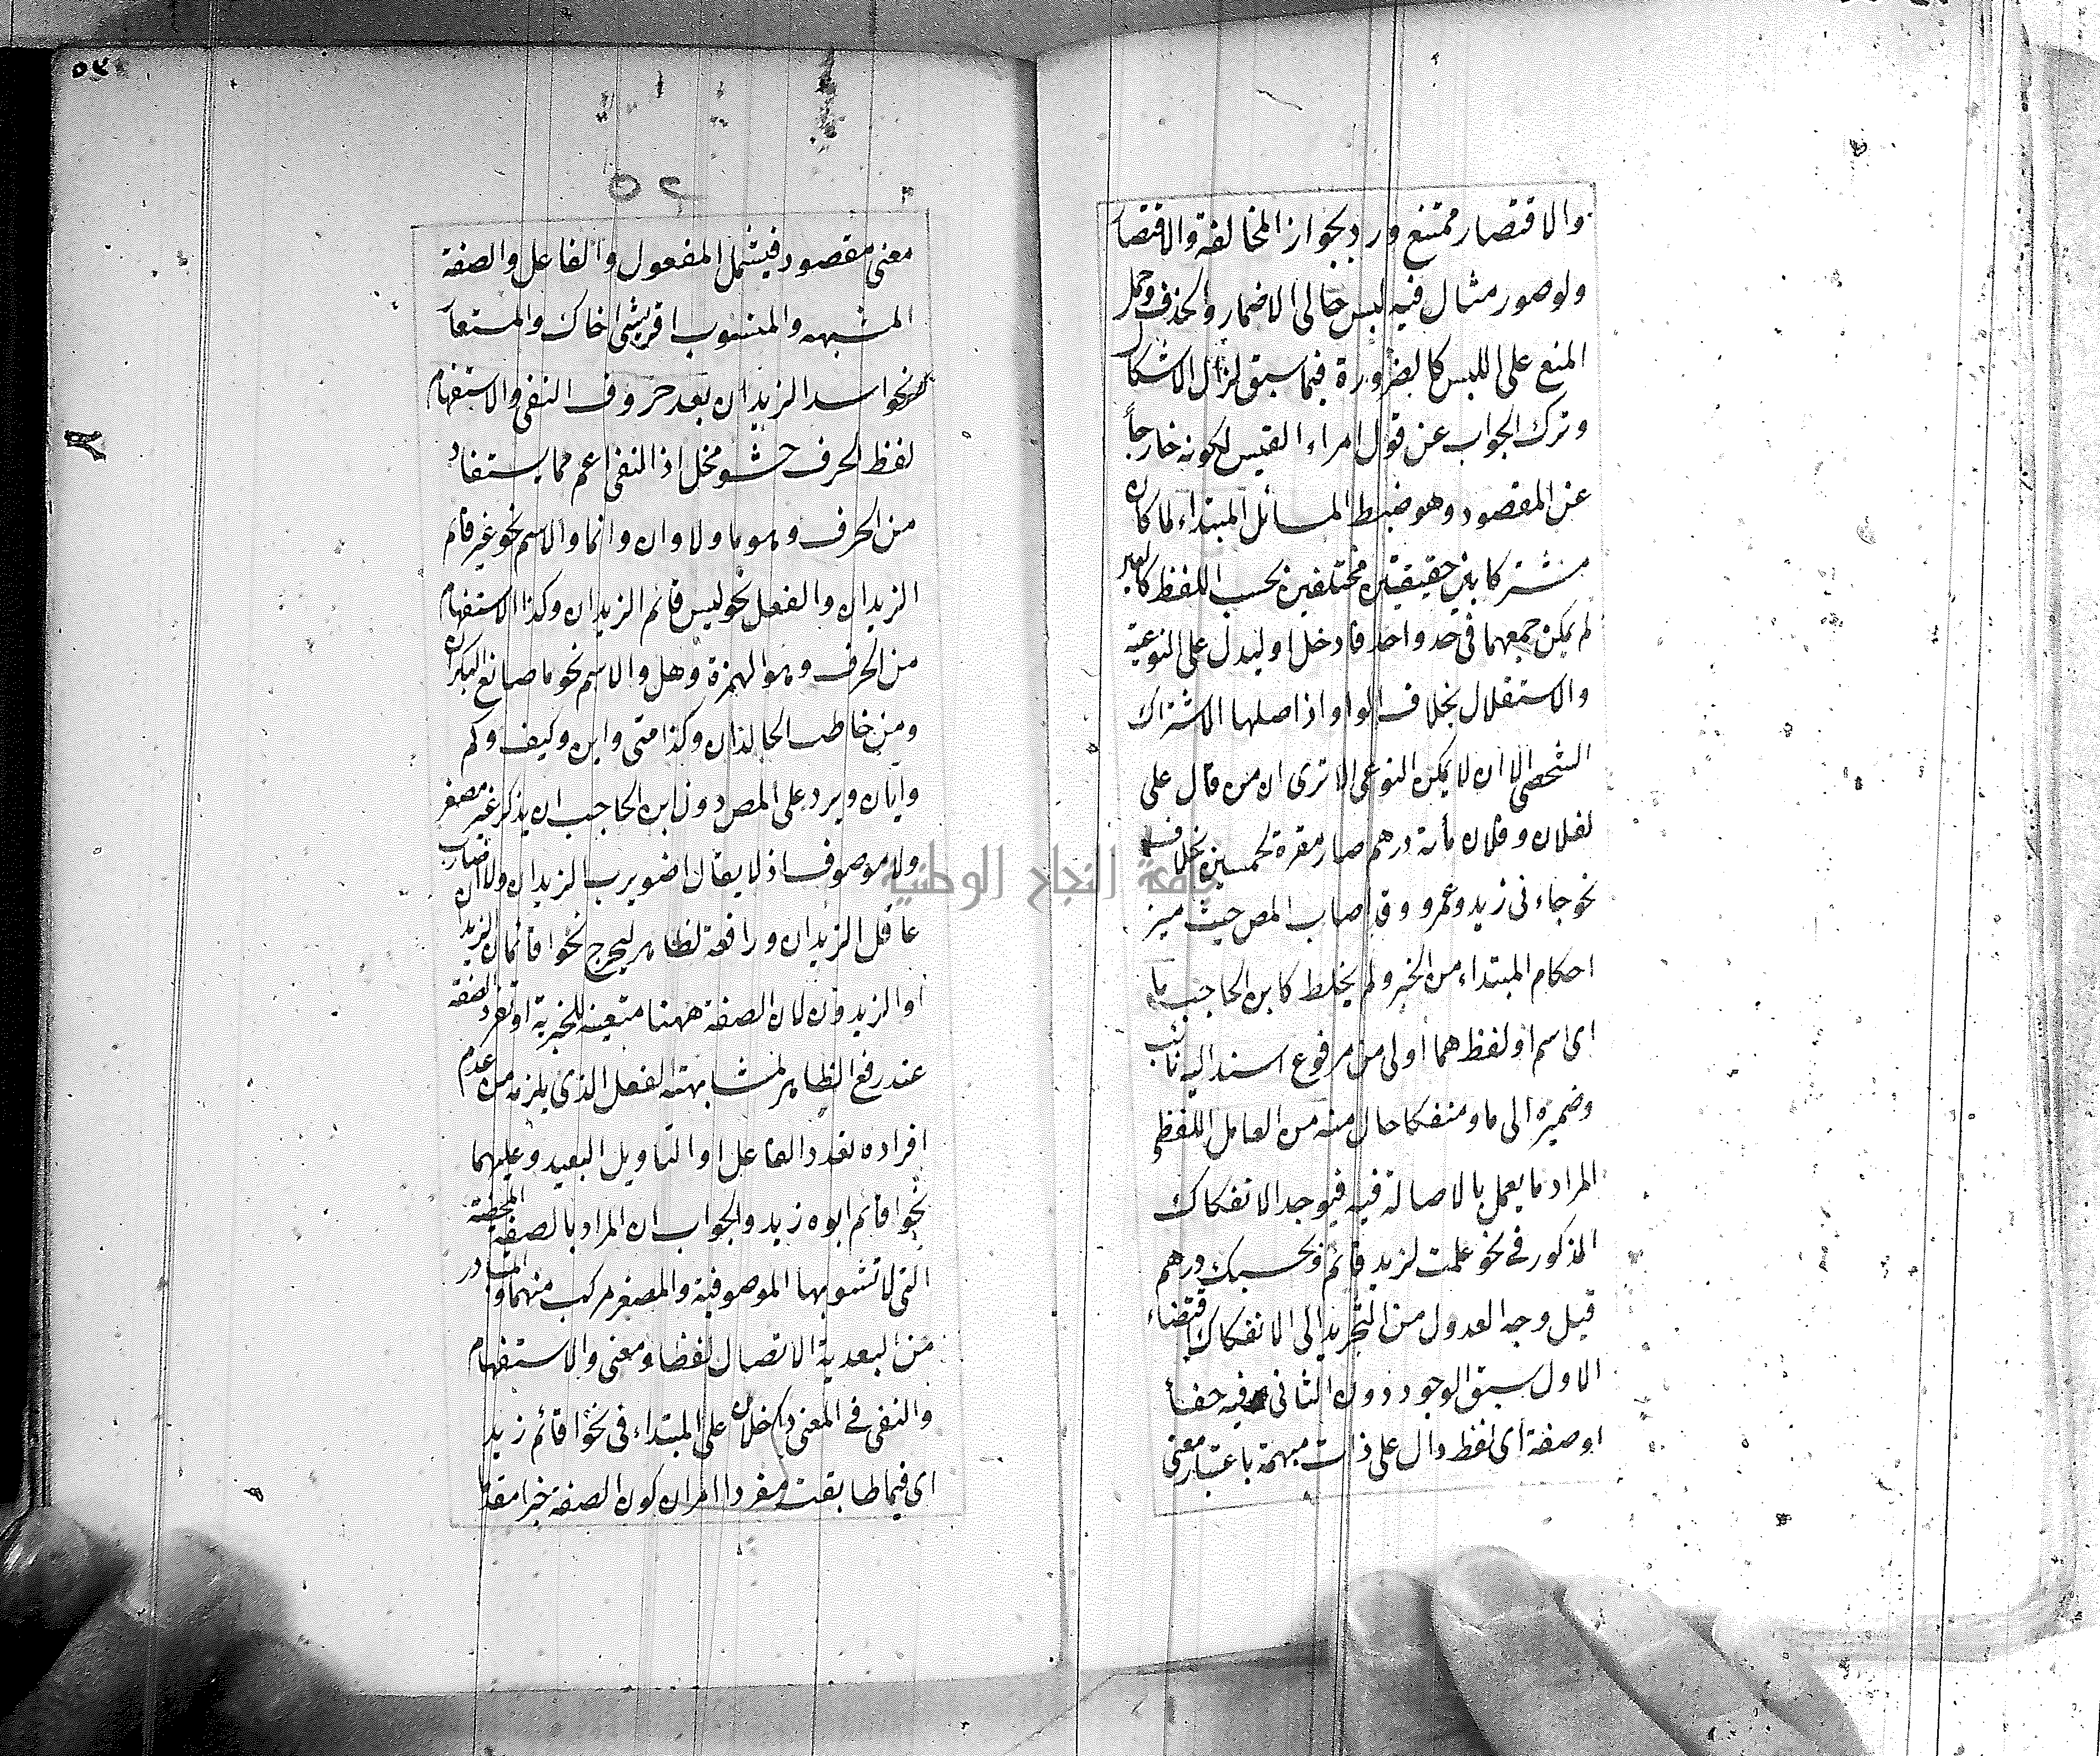 والاقتصار ممتنع ورد بجواز المخالفة والاقتصا
ولو صور مثال فيه لبس حالى الاضمار والحذف وحمل
المنع على اللبس كالضرورة فيما سبق لزال الاشكال
وترك الجواب عن قول امراء القيس لكونه خارجاً
عن المقصود وهو ضبط المسائل المبتداء لما كان
مشتركا بين حقيقتين مختلفين بحسب اللفظ
لم يمكن جمعهما فى حد واحد فادخل او ليدل على النوعية
والاستقلال بخلاف الواو اذ اصلها الاشتراك
الشخصى الا ان لا يمكن النوعى الا ترى ان من قال على
لفلان وفلان مأنة درهم صار مقره لخمسين بخلاف
نحو جاءنى زيد وعمرو وقد اصاب المص حيث ميز
احكام المبتداء من الخبر ولم يخلط كابن الحاجب ما
اى اسم او لفظ هما اولى من مرفوع اسند اليه نائب
وضميره الى ما ومنفكا حال منه من العامل اللفظى
المراد ما يعمل بالاصالة فيه فيوجد الانفكاك
المذكور فى نحو علمت لزيد قائم وبحسبك درهم
قيل وجه العدول من التجريد الى الانفكاك اقتضاء
الاول سبق الوجود دون الثانى وفيه خفاء
او صفة اى لفظ دال على ذات مبهمة باعتبار معنى
٥٢
معنى مقصود فيشمل المفعول والفاعل والصفة
المشبهه والمنسوب اقريشى اخاك والمستعار
نحو اسد الزيدان بعد حروف النفى والاستفهام
لفظ الحرف حشو مخل اذ النفى اعم مما يستفاد
من الحرف وهو ما ولا وان وانما والاسم نحو غير قائم
الزيدان والفعل نحو ليس قائم الزيدان وكذا الاستفهام
من الحرف وهو الهمزة وهل والاسم نحو ما صانع البكران
ومن خاطب الخالدان وكذا متى واين وكيف وكم
وايان ويرد على المص دون ابن الحاجب ان يذكر غير مصغر
ولا موصوف اذ لا يقال اضويرب الزيدان ولا ضارب
عاقل الزيدان ورافعة لظاهر ليخرج نحو اقائمان الزيدان
او الزيدون لان الصفة ههنا متعينة للخبرية او تفرد الصفة
عند رفع الظاهر لمشابهته الفعل الذى يلزم من عدم
افراده تعدد الفاعل او التاويل البعيد وعليهما
نحو اقائم ابوه زيد والجواب ان المراد بالصفة المحضة
التى لا تشوبها الموصوفية والمصغر مركب منهما والمتبادر
من البعدية الاتصال لفظا ومعنى والاستفهام
والنفى فى المعنى داخلان على المبتداء فى نحو اقائم زيد
اى فيما طابقت مفردا امران كون الصفة خبرا مقدما
جامعة النجاح الوطنية